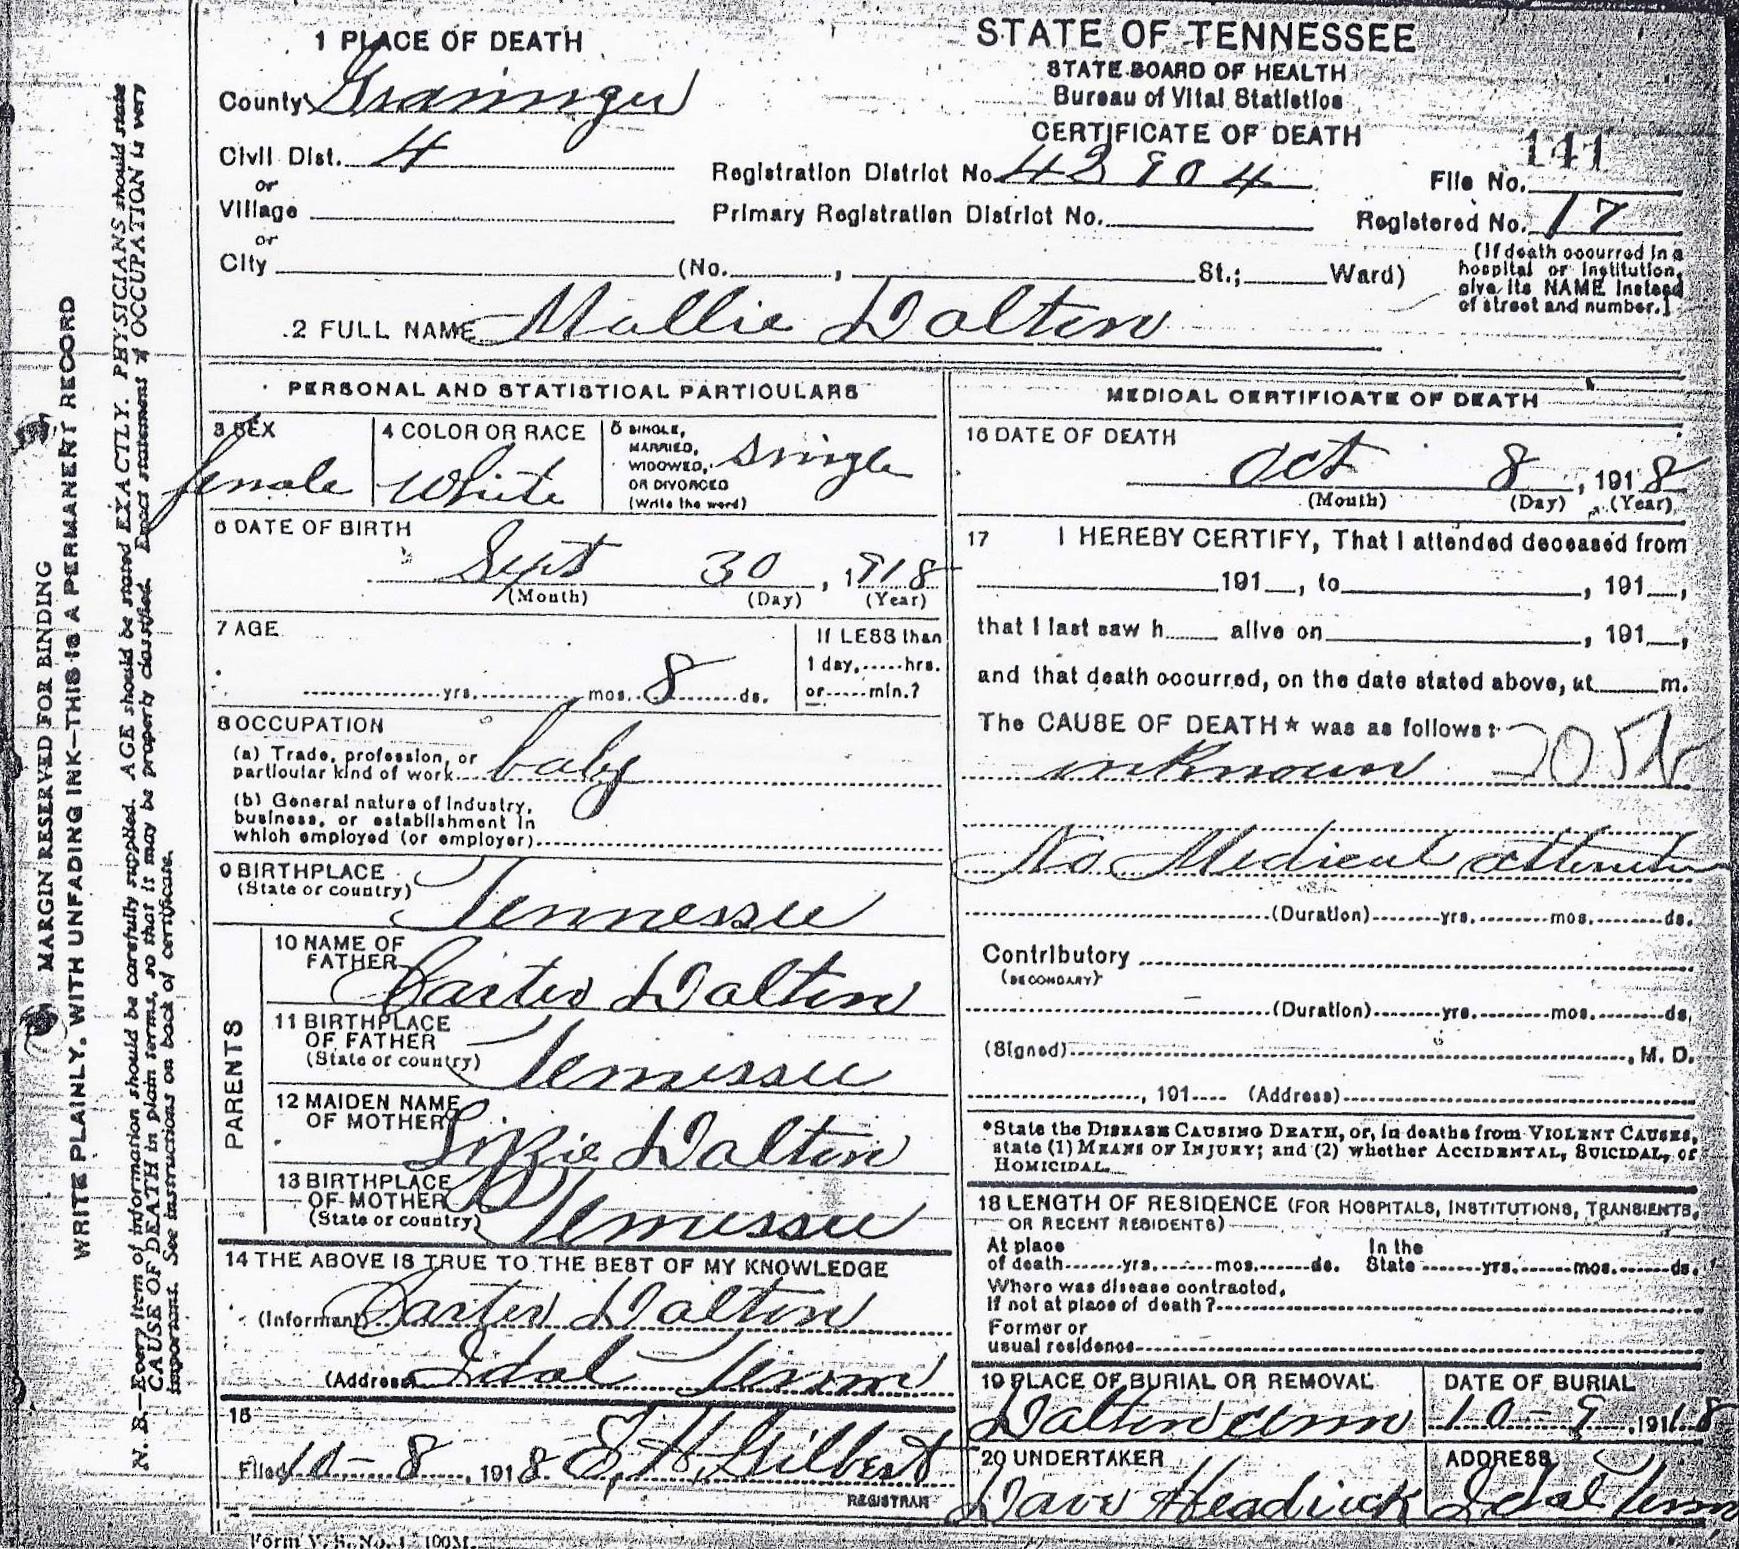 1 PLACE OF DEATH
STATE OF TENNESSEE
STATE BOARD OF HEALTH
Bureau of Vital Statistics
CERTIFICATE OF DEATH
County Grainger
Civil Dist. 4
or
Village
or
City (No. , St.; Ward)
Registration District No. 42904
Primary Registration District No.
141
File No.
Registered No. 17
(If death occurred in a
hospital or institution,
give its NAME instead
of street and number.]
2 FULL NAME Mallie Dalton
PERSONAL AND STATISTICAL PARTICULARS
3 SEX
female
4 COLOR OR RACE
White
5 SINGLE,
MARRIED,
WIDOWED,
OR DIVORCED
(Write the word)
single
6 DATE OF BIRTH
Sept 30, 1918
(Month) (Day) (Year)
7 AGE
yrs. mos. 8 ds.
If LESS than
1 day, hrs.
or min.?
8 OCCUPATION
(a) Trade, profession, or
particular kind of work baby
(b) General nature of industry,
business, or establishment in
which employed (or employer)
9 BIRTHPLACE
(State or country) Tennessee
PARENTS
10 NAME OF
FATHER Carter Dalton
11 BIRTHPLACE
OF FATHER
(State or country) Tennessee
12 MAIDEN NAME
OF MOTHER Lizzie Dalton
13 BIRTHPLACE
OF MOTHER
(State or country) Tennessee
14 THE ABOVE IS TRUE TO THE BEST OF MY KNOWLEDGE
(Informant) Carter Dalton
(Address) Idol Tenn
15
Filed 10-8, 1918 E. H. Gilbert
REGISTRAR
Form V. S. No. 1 100M.
MEDICAL CERTIFICATE OF DEATH
16 DATE OF DEATH
Oct 8, 1918
(Month) (Day) (Year)
17 I HEREBY CERTIFY, That I attended deceased from
191 , to , 191 ,
that I last saw h alive on , 191 ,
and that death occurred, on the date stated above, at m.
The CAUSE OF DEATH* was as follows:
unknown
No Medical attention
(Duration) yrs. mos. ds.
Contributory
(SECONDARY)
(Duration) yrs. mos. ds.
(Signed) , M. D.
, 191 (Address)
*State the DISEASE CAUSING DEATH, or, in deaths from VIOLENT CAUSES,
state (1) MEANS OF INJURY; and (2) whether ACCIDENTAL, SUICIDAL, or
HOMICIDAL.
18 LENGTH OF RESIDENCE (FOR HOSPITALS, INSTITUTIONS, TRANSIENTS,
OR RECENT RESIDENTS)
At place
of death yrs. mos. ds.
In the
State yrs. mos. ds.
Where was disease contracted,
If not at place of death?
Former or
usual residence
19 PLACE OF BURIAL OR REMOVAL
Dalton cem
DATE OF BURIAL
10-9, 1918
20 UNDERTAKER
Dave Headrick
ADDRESS
Idol Tenn
MARGIN RESERVED FOR BINDING
WRITE PLAINLY, WITH UNFADING INK—THIS IS A PERMANENT RECORD
N. B.—Every item of information should be carefully supplied. AGE should be stated EXACTLY. PHYSICIANS should state
CAUSE OF DEATH in plain terms, so that it may be properly classified. Exact statement of OCCUPATION is very
important. See instructions on back of certificate.